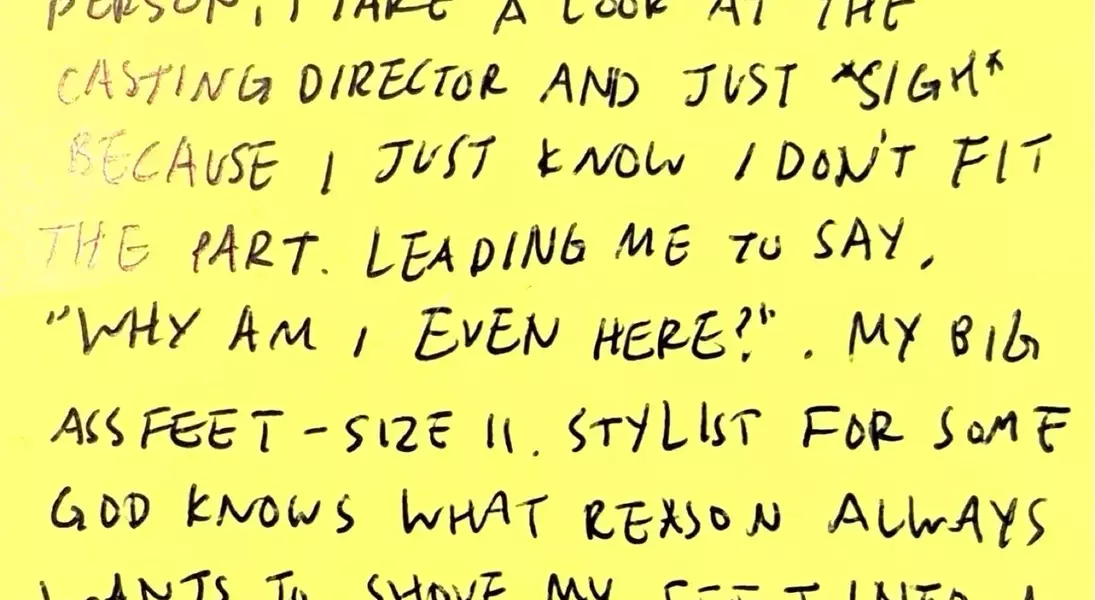 PERSON, I TAKE A LOOK AT THE
CASTING DIRECTOR AND JUST *SIGH*
BECAUSE I JUST KNOW I DON'T FIT
THE PART. LEADING ME TO SAY,
"WHY AM I EVEN HERE?". MY BIG
ASS FEET - SIZE 11. STYLIST FOR SOME
GOD KNOWS WHAT REASON ALWAYS
WANTS TO SHOVE MY FEET INTO A